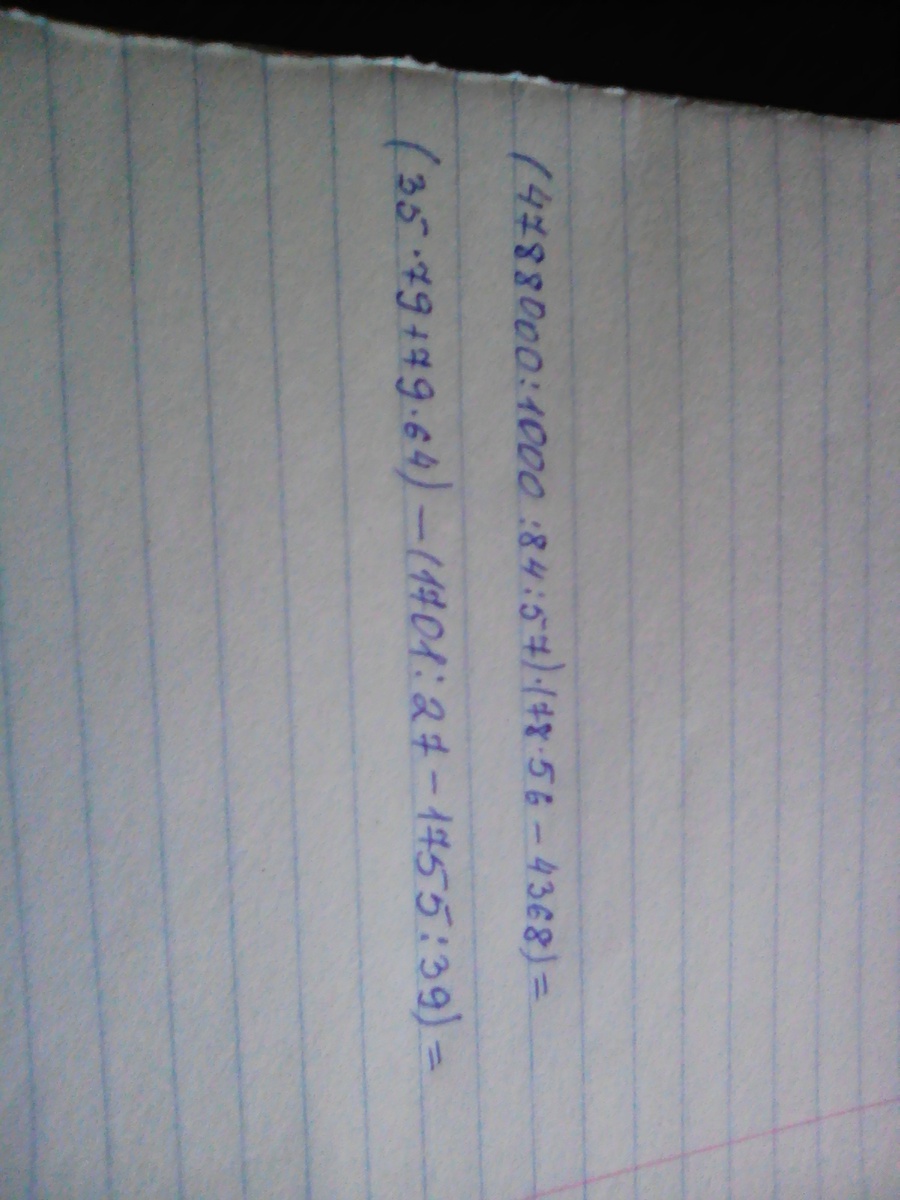 (4788000:1000:84:57)·(78·56-4368)=
(35·79+79·64)-(1701:27-1755:39)=